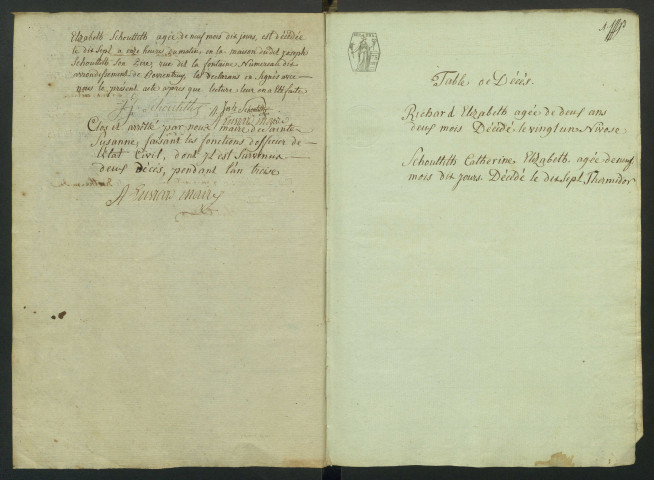 Elizabeth Schoulteth agée de neuf mois dix jours, est décédée
le dix sept a onze heures du matin, en la maison du dit joseph
Schoulteth son père, rue dit la fontaine Numero dix
arrondissement de Porrentruy, les Declarans on signés avec
nous le présent acte après que lecture leur en a été faite
Clos et arrêté par nous maire de Sainte
Susanne, faisant les fonctions d'officier de
l'état Civil, dont il est Survenus
deux décès, pendant l'an treise
maire
Table de Décès.
Richard Elizabeth agée de deux ans
deux mois Décédé le vingt une Nivose
Schoulteth Catherine Elizabeth. agée de neuf
mois dix jours. Décédé le dix Sept Thermidor